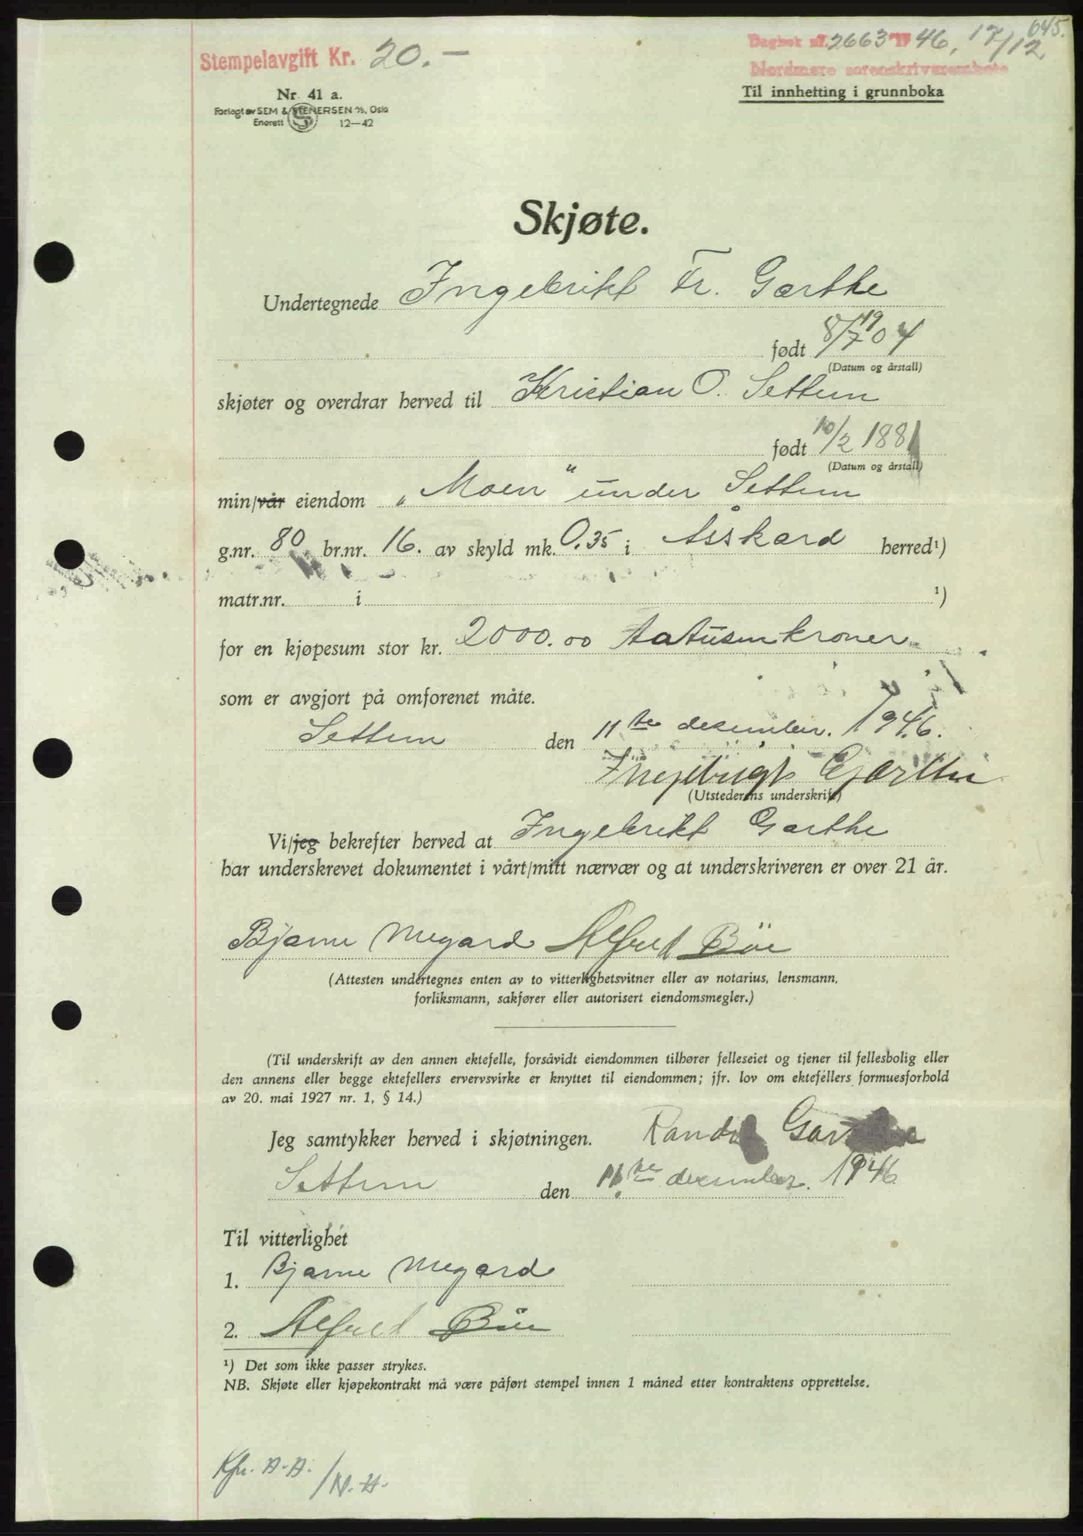 Stempelavgift Kr. 20.-
Dagbok nr. 2663 19 46. 17/12 645.
Nordmøre sorenskriverembete
Nr. 41 a.
Til innhefting i grunnboka
Forlagt av SEM & STENERSEN A/S, Oslo
Enerett 12—42
Skjøte.
Undertegnede Ingebrikt Fr. Garthe
født 8/7 1904
(Datum og årstall)
skjøter og overdrar herved til Kristian O. Settem
født 10/2 1881
(Datum og årstall)
min/vår eiendom „Moen" under Settem
g.nr. 80 br.nr. 16. av skyld mk. 0.35 i Åsskard herred¹)
matr.nr. i ¹)
for en kjøpesum stor kr. 2000.00 totusenkroner
som er avgjort på omforenet måte.
Settem den 11te desember. 1946.
Ingebrigt Garthe
(Utstederens underskrift)
Vi/jeg bekrefter herved at Ingebrikt Garthe
har underskrevet dokumentet i vårt/mitt nærvær og at underskriveren er over 21 år.
Bjarne Megard Alfred Bøe
(Attesten undertegnes enten av to vitterlighetsvitner eller av notarius, lensmann,
forliksmann, sakfører eller autorisert eiendomsmegler.)
(Til underskrift av den annen ektefelle, forsåvidt eiendommen tilhører felleseiet og tjener til fellesbolig eller
den annens eller begge ektefellers ervervsvirke er knyttet til eiendommen; jfr. lov om ektefellers formuesforhold
av 20. mai 1927 nr. 1, § 14.)
Jeg samtykker herved i skjøtningen. Randi Garthe
Settem den 11te desember. 1946
Til vitterlighet
1. Bjarne Megard
2. Alfred Bøe
¹) Det som ikke passer strykes.
NB. Skjøte eller kjøpekontrakt må være påført stempel innen 1 måned etter kontraktens opprettelse.
Kfr. A.A. / N.H.